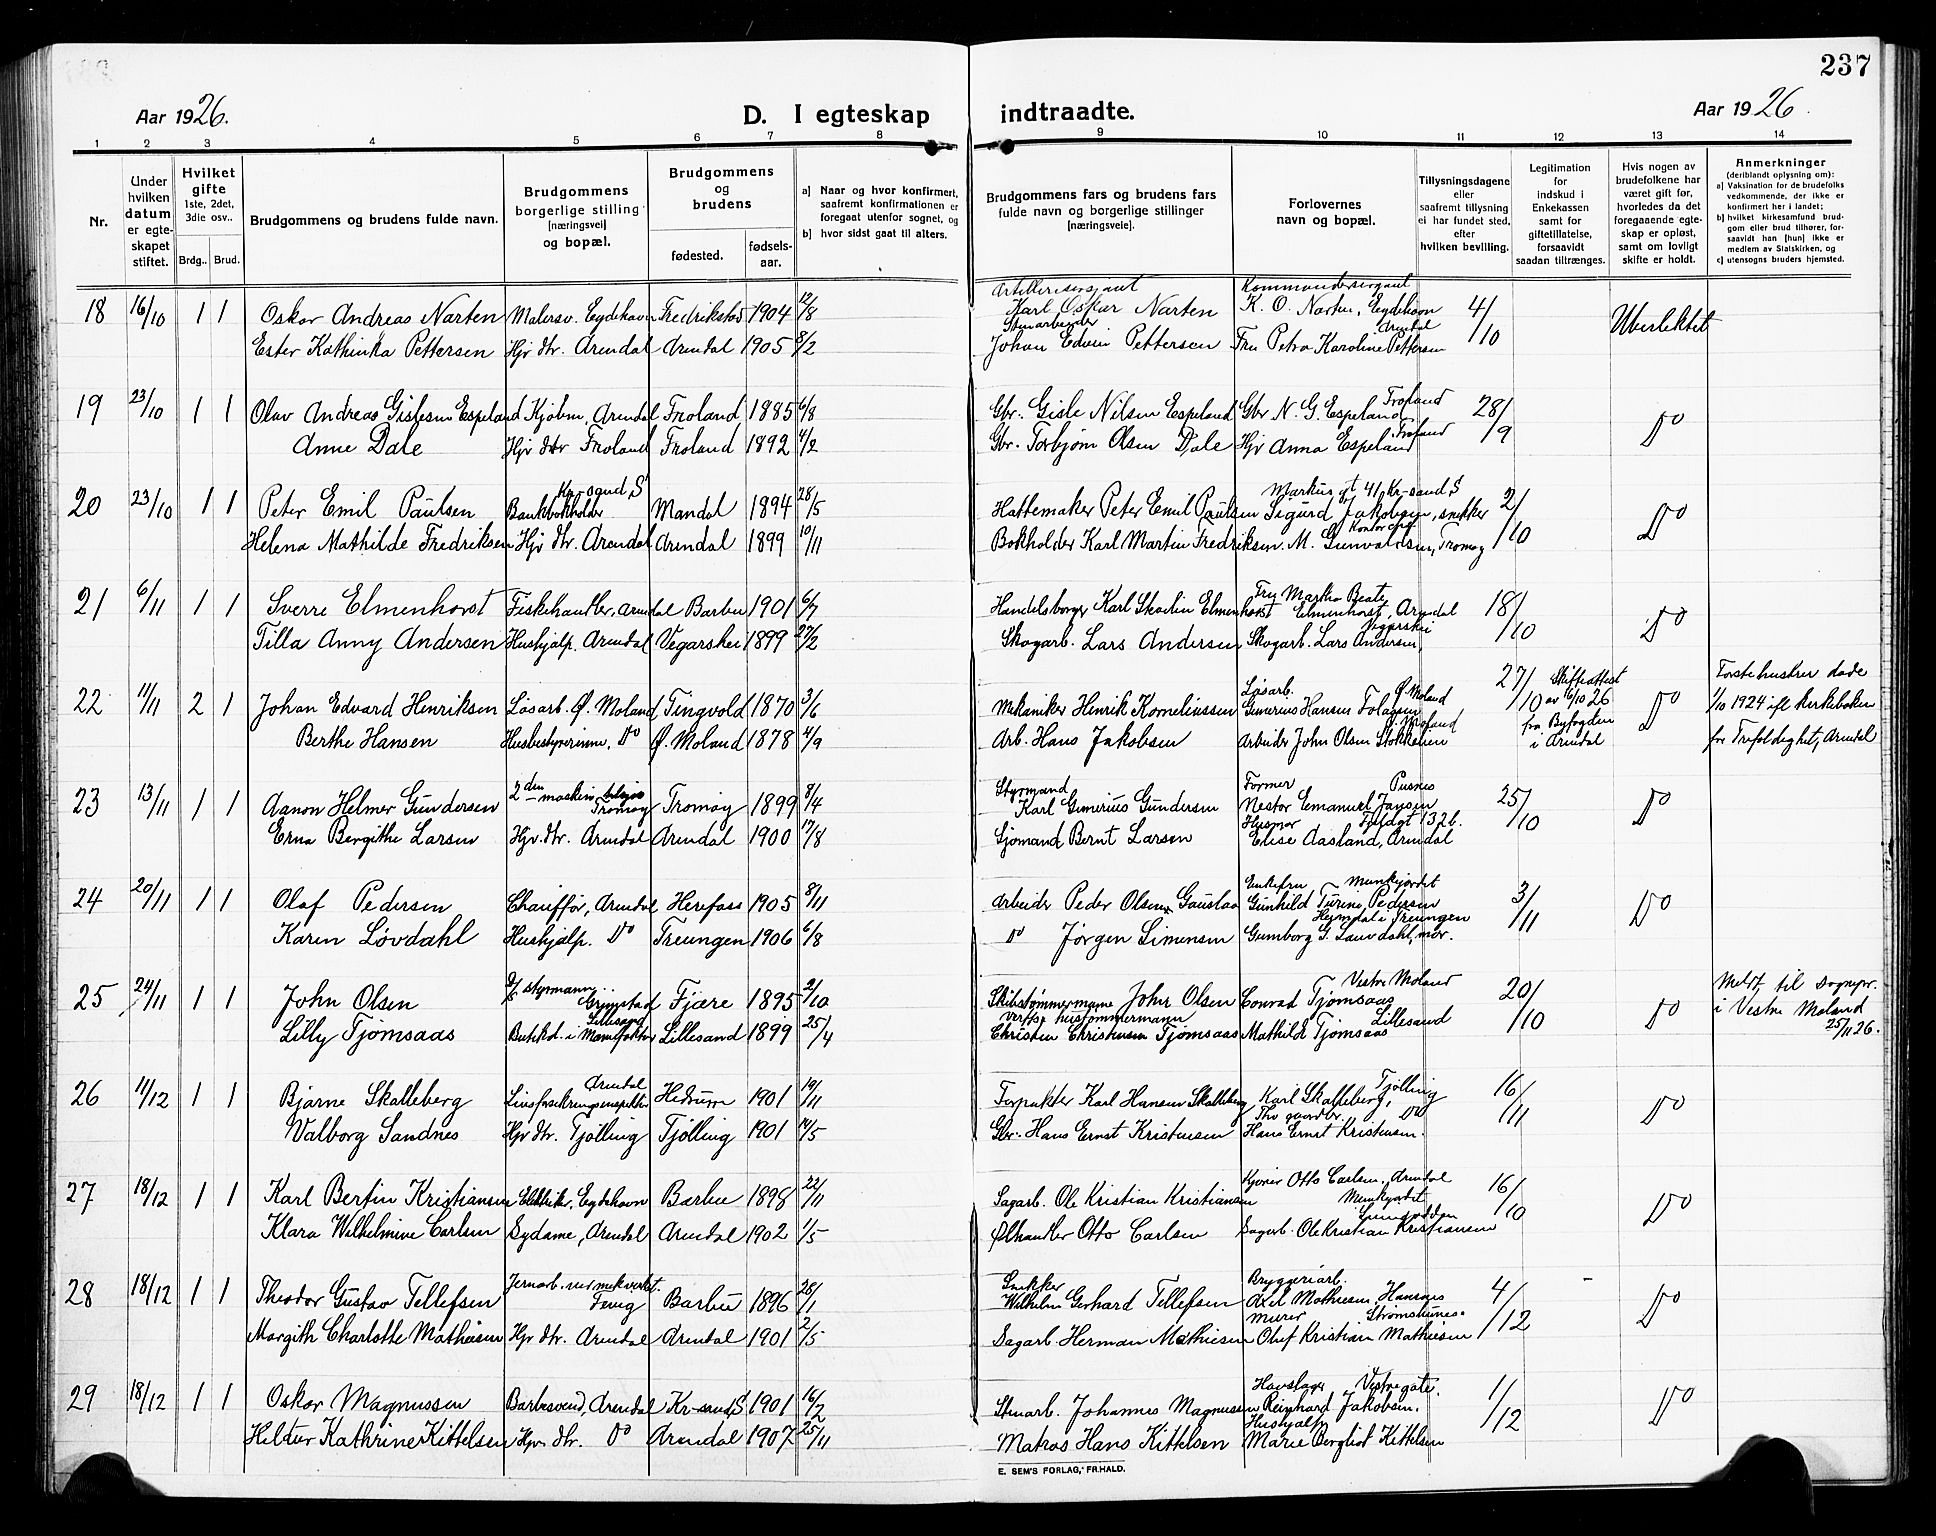 237
Aar 1926.
D. I egteskap indtraadte.
Aar 1926.
1 2 3 4 5 6 7 8 9 10 11 12 13 14
Nr.
Under hvilken datum er egteskapet stiftet.
Hvilket gifte 1ste, 2det, 3die osv..
Brdg.. Brud.
Brudgommens og brudens fulde navn.
Brudgommens borgerlige stilling [næringsvei] og bopæl.
Brudgommens og brudens
fødested. fødsels-aar.
a] Naar og hvor konfirmert, saafremt konfirmationen er foregaat utenfor sognet, og
b] hvor sidst gaat til alters.
Brudgommens fars og brudens fars fulde navn og borgerlige stillinger [næringsveie].
Forlovernes navn og bopæl.
Tillysningsdagene eller saafremt tillysning ei har fundet sted, efter hvilken bevilling.
Legitimation for indskud i Enkekassen samt for giftetillatelse, forsaavidt saadan tiltrænges.
Hvis nogen av brudefolkene har været gift før, hvorledes da det foregaaende egteskap er opløst, samt om lovligt skifte er holdt.
Anmerkninger (deriblandt oplysning om):
a) Vaksination for de brudefolks vedkommende, der ikke er konfirmert her i landet;
b) hvilket kirkesamfund brudgom eller brud tilhører, forsaavidt han [hun] ikke er medlem av Statskirken, og
c) utensogns bruders hjemsted.
18 16/10 1 1 Oskar Andreas Narten Malersv. Eydehavn Fredrikstad 1904 12/8 Artillerisersjant Karl Oskar Narten Kommandersergant K. O. Narten, Eydehavn 4/10 Ubeslektet
Ester Kathinka Pettersen Hjv dtr. Arendal Arendal 1905 8/2 Stenarbeider Johan Edvin Pettersen Fru Petra Karoline Pettersen Arendal
19 23/10 1 1 Olav Andreas Gislesen Espeland Kjøbm, Arendal Froland 1885 6/8 Gbr. Gisle Nilsen Espeland Gbr N. G. Espeland Froland 28/9 Do
Anne Dale Hjv dtr Froland Froland 1892 4/2 Gbr. Torbjørn Olsen Dale Hjv Anna Espeland Froland
20 23/10 1 1 Peter Emil Paulsen Bankbokholder Kr-sand S Mandal 1894 28/5 Hattemaker Peter Emil Paulsen Markus gt 41 Kr-sand S Sigurd Jakobsen, snekker 2/10 Do
Helena Mathilde Fredriksen Hjv dtr. Arendal Arendal 1899 10/11 Bokholder Karl Martin Fredriksen. Kontorchef M. Gunvaldsen, Tromøy
21 6/11 1 1 Sverre Elmenhorst Fiskehandler, Arendal Barbu 1901 6/7 Handelsborger Karl Skaolin Elmenhorst Fru Martha Beate Elmenhorst, Arendal 18/10 Do
Tilla Anny Andersen Hushjælp. Arendal Vegarshei 1899 27/2 Skogarb. Lars Andersen Skogarb. Lars Andersen, Vegarshei
22 11/11 2 1 Johan Edvard Henriksen Løsarb. Ø. Moland Tingvold 1870 3/6 Mekaniker Henrik Korneliussen Løsarb. Ø. Moland Gunerius Hansen 27/10 Skifteattest av 16/10 26 fra Byfogden i Arendal Do Første hustru døde 1/10 1924 ifl kirkeboken for Trefoldighet, Arendal
Berthe Hansen Husbestyrerinne, Do Ø. Moland 1878 4/9 Arb. Hans Jakobsen Arbeider John Olsen Ø. Moland
23 13/11 1 1 Aanon Helmer Gundersen 2den maskin Tromøy Tromøy 1899 8/4 Styrmand Karl Gunerius Gundersen Former Pusnes Nestor Emanuel Jansen 25/10 Do
Erna Bergithe Larsen Hjv. dtr. Arendal Arendal 1900 17/8 Sjømand Bernt Larsen Husmor 132b. Elise Aasland, Arendal
24 20/11 1 1 Olaf Pedersen Chauffør, Arendal Herefoss 1905 8/11 Arbeider Peder Olsen Enkefru Munkejordet Gunhild Turine Pedersen 3/11 Do
Karen Løvdahl Hushjælp. Do Treungen 1906 6/8 Do Jørgen Simensen Heimdal i Treungen Gumborg G. Lauvdahl, mor.
25 24/11 1 1 John Olsen styrmann Grimstad Fjære 1895 2/10 Skibstømmermann John Olsen Conrad Tjømsaas Vestre Moland 20/10 Do Meldt til sognepr. i Vestre Moland 25/11 26.
Lilly Tjømsaas Butikd. i Manufaktur Lillesand Lillesand 1899 25/4 hustømmermann Christen Christensen Tjømsaas Mathilde Tjømsaas Lillesand
26 11/12 1 1 Bjarne Skalleberg Livsforsikringsinspektør Arendal Hedrum 1901 19/11 Forpakter Karl Hansen Skalleberg Karl Skalleberg, Tjølling 16/11 Do
Valborg Sandnes Hjv dtr. Tjølling Tjølling 1901 14/5 Gbr. Hans Ernst Kristensen gaardbr. Do Hans Ernst Kristensen.
27 18/12 1 1 Karl Bertin Kristiansen Elektrik. Eydehavn Barbu 1898 22/11 Sagarb. Ole Kristian Kristiansen Otto Carlsen. Arendal 16/10 Do
Klara Wilhelmine Carlsen Sydame, Arendal Arendal 1902 1/5 Ølhandler Otto Carlsen Munkejordet Sagarb. Ole Kristian Kristiansen
28 18/12 1 1 Theodor Gustav Tellefsen Jernarb. ved mek verkst. Barbu 1896 28/1 Snekker Wilhelm Gerhard Tellefsen Bryggeriarb. Axel Mathiesen 4/12 Do
Margith Charlotte Mathiesen Hjv dtr. Arendal Arendal 1901 2/5 Sagarb. Herman Mathiesen Murer Oluf Kristian Mathiesen
29 18/12 1 1 Oskar Magnussen Barbersvend, Arendal Kr-sand S 1901 16/2 Stenarb. Johannes Magnussen Hovslager Vestregate. Reinhard Jakobsen. 1/12 Do
Hildur Kathrine Kittelsen Hjv. dtr. Do Arendal 1907 25/11 Matros Hans Kittelsen Hushjælp Marie Bergliot Kittelsen
E. SEM'S FORLAG, FR.HALD.